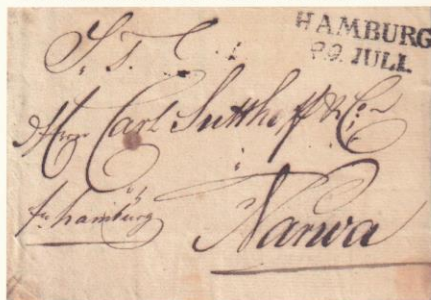 HAMBURG
29. JULI.
S. T.
Herrn Carl Sutthoff & Co
fr. hamburg
Narwa